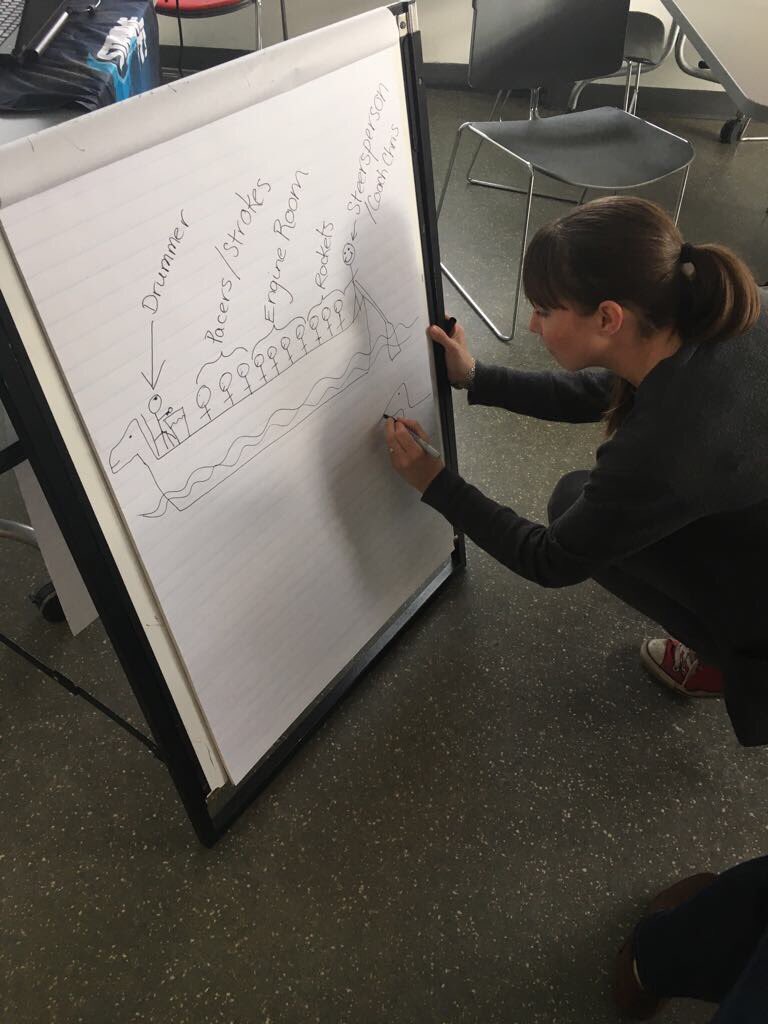 Drummer
Pacers/Strokes
Engine Room
Rockets
Steersperson
/Coach Chris